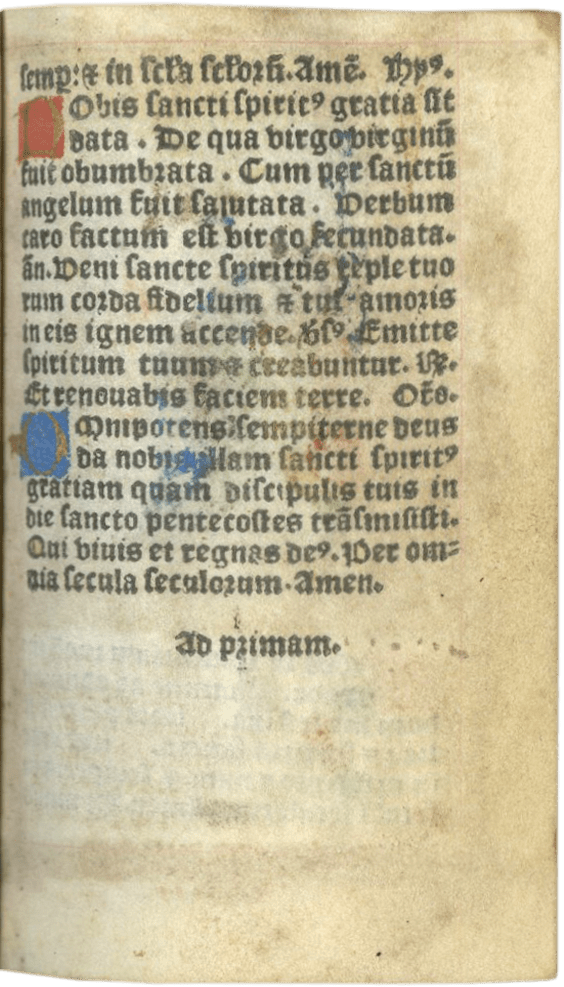 semp: ⁊ in sc̄ła scłoꝛū. Amē. Hyꝰ.
Nobis sancti spiritꝰ gratia sit
data . De qua virgo virginū
fuit obumbrata . Cum per sanctū
angelum fuit salutata . Verbum
caro factum est virgo fecundata.
añ. Veni sancte spiritus reple tuo
rum corda fidelium ⁊ tui amoris
in eis ignem accende. Ꝟsꝰ. Emitte
spiritum tuum ⁊ creabuntur. ℟.
Et renouabis faciem terre. Oro.
Omnipotens sempiterne deus
da nobis illam sancti spiritꝰ
gratiam quam discipulis tuis in
die sancto pentecostes trāsmisisti.
Qui viuis et regnas deꝰ. Per om⸗
nia secula seculorum. Amen.
Ad primam.